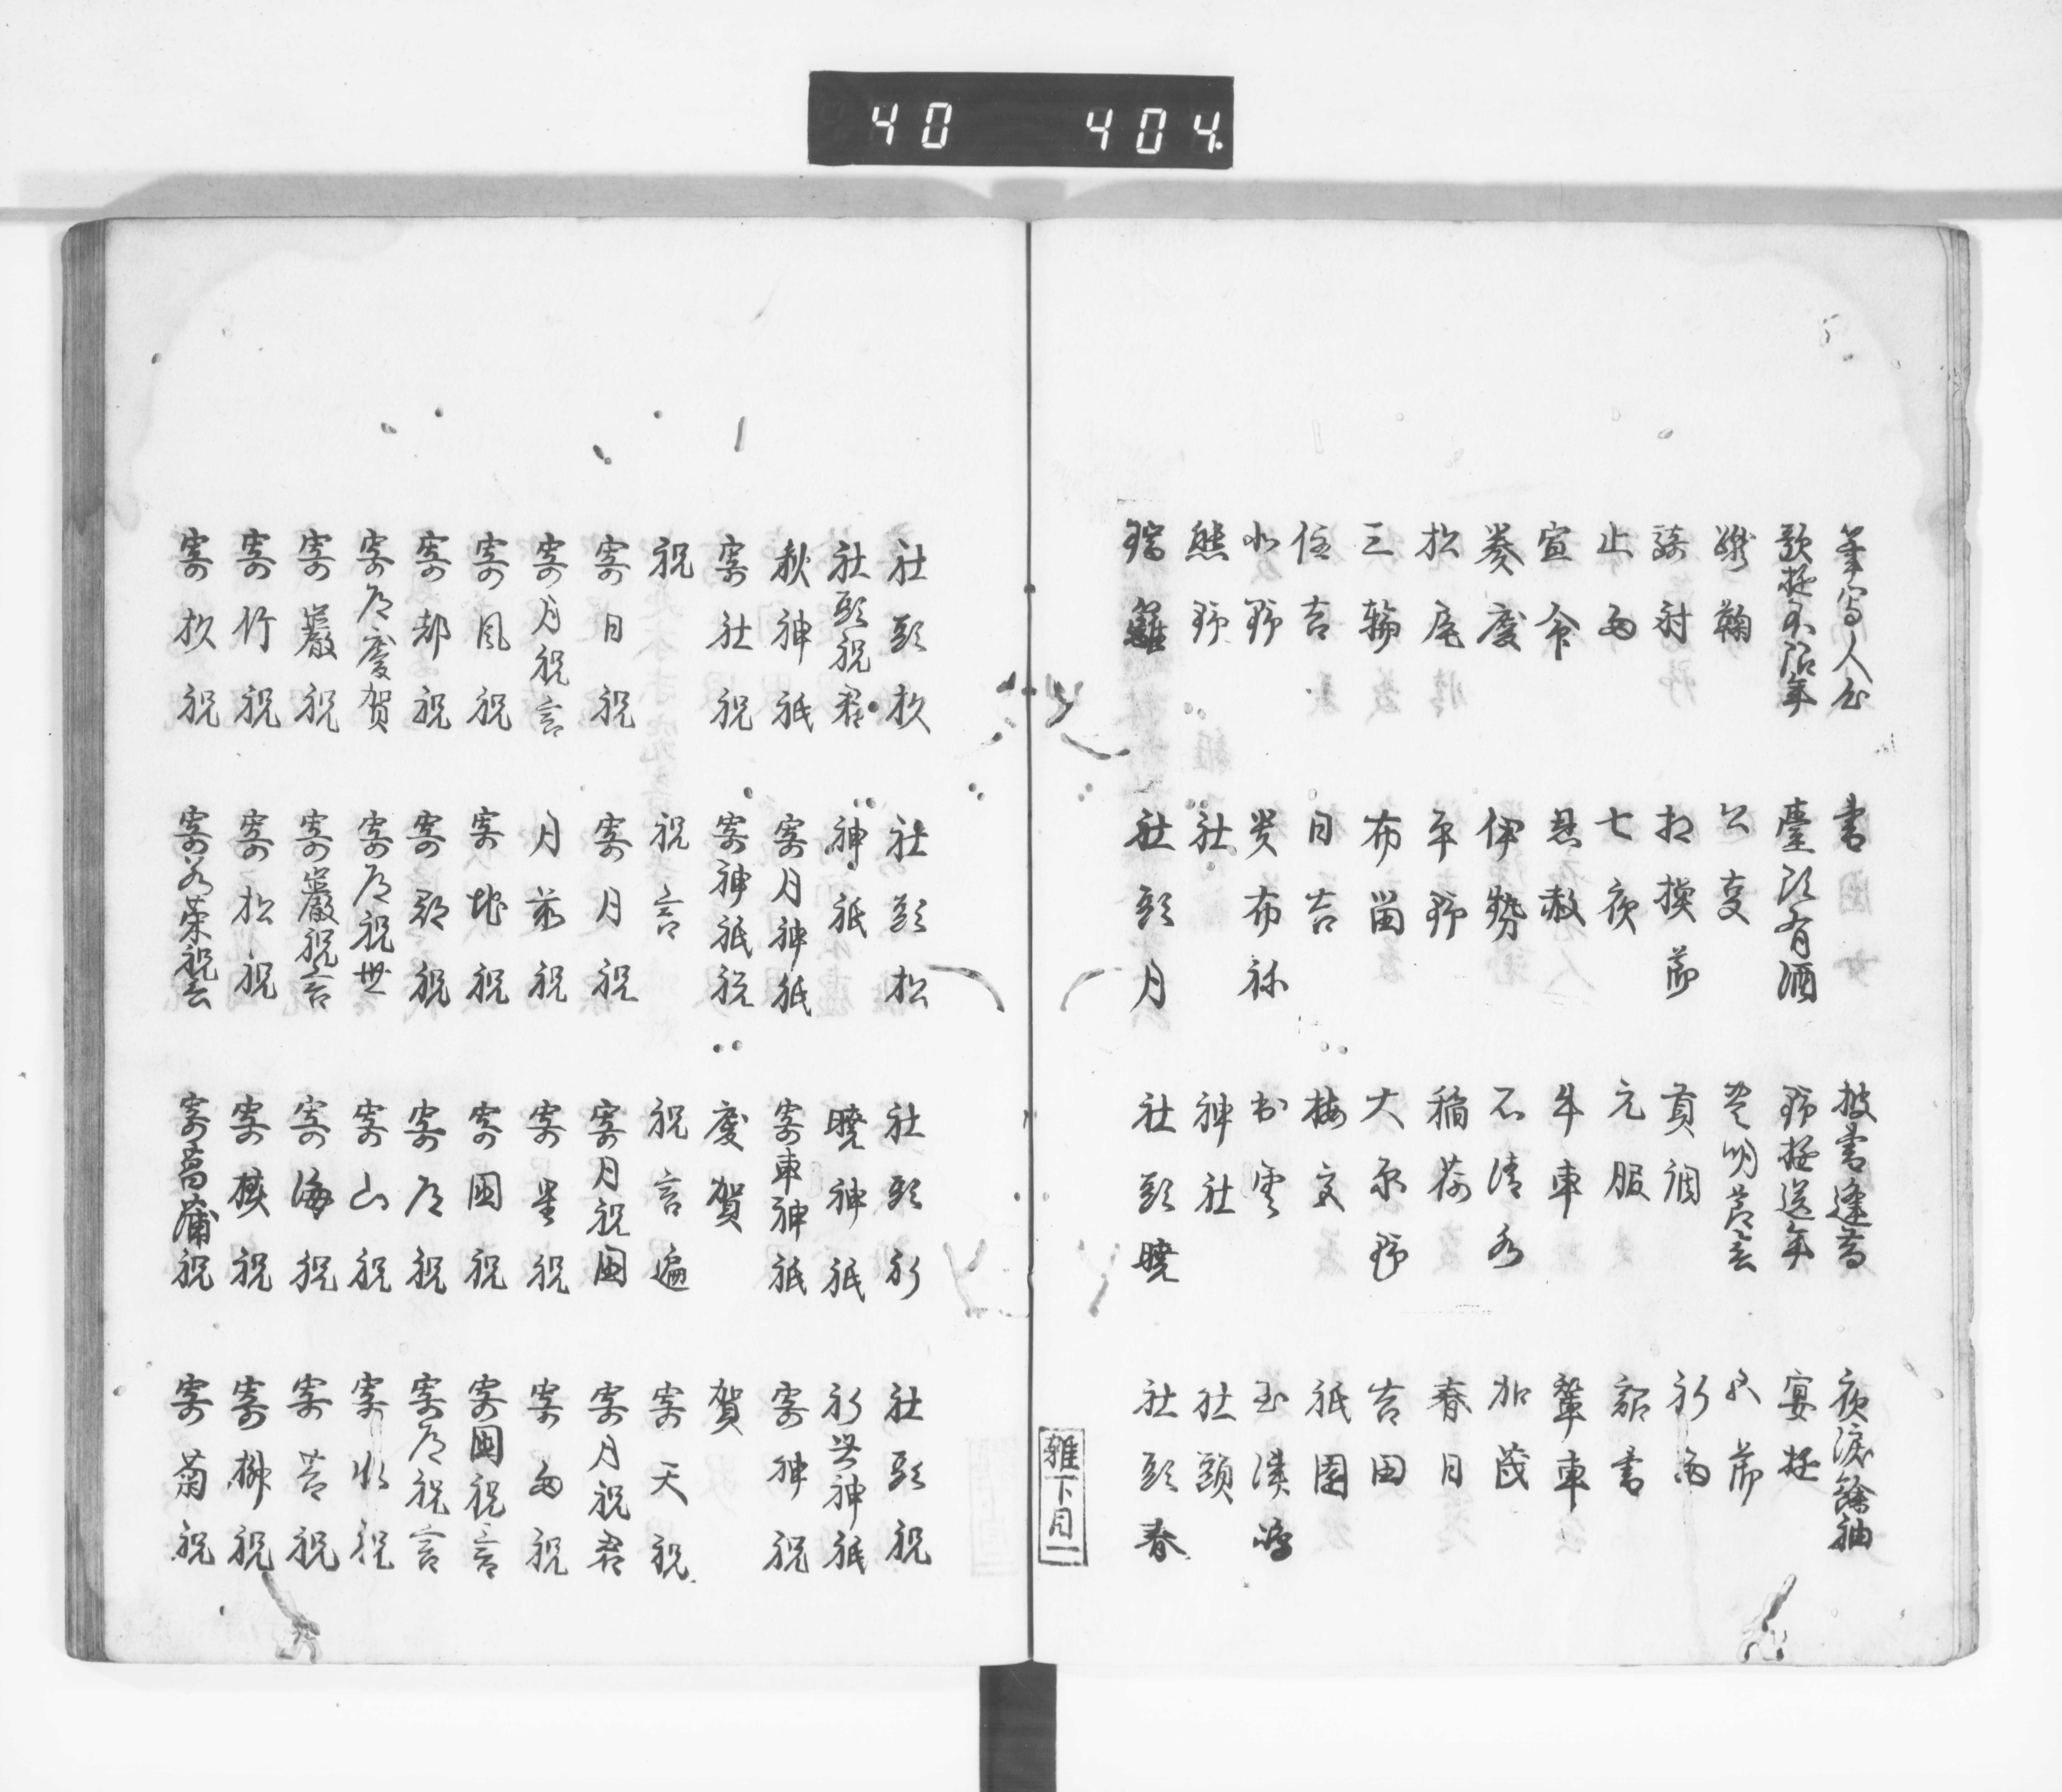 筆写人心 書 披書逢昔 夜涙餘袖
歌遊不限年 臺頂有酒 野遊送年 宴遊
蹴鞠 公事 豊明節会 五節
騎射 相撲節 貢調 祈雨
止雨 七夜 元服 詔書
宣命 恩赦 牛車 輦車
奏慶 伊勢 石清水 加茂
松尾 平野 稲荷 春日
三輪 布留 大原野 吉田
住吉 日吉 梅宮 祇園
北野 貴布祢 出雲 玉津嶋
熊野 社 神社 社頭
瑞籬 社頭月 社頭暁 社頭春
雑下目一
社頭杉 社頭松 社頭祈 社頭祝
社頭祝君 神祇 暁神祇 祈世神祇
秋神祇 寄月神祇 寄車神祇 寄神祝
寄社祝 寄神祇祝 慶賀 賀
祝 祝言 祝言遍 寄天祝
寄日祝 寄月祝 寄月祝国 寄月祝君
寄月祝言 月前祝 寄星祝 寄雨祝
寄風祝 寄地祝 寄国祝 寄国祝言
寄都祝 寄郡祝 寄道祝 寄道祝言
寄道慶賀 寄道祝世 寄山祝 寄水祝
寄巌祝 寄巌祝言 寄海祝 寄苔祝
寄竹祝 寄松祝 寄祝 寄祝
寄杉祝 寄若菜祝言 寄菖蒲祝 寄菊祝
40 404.